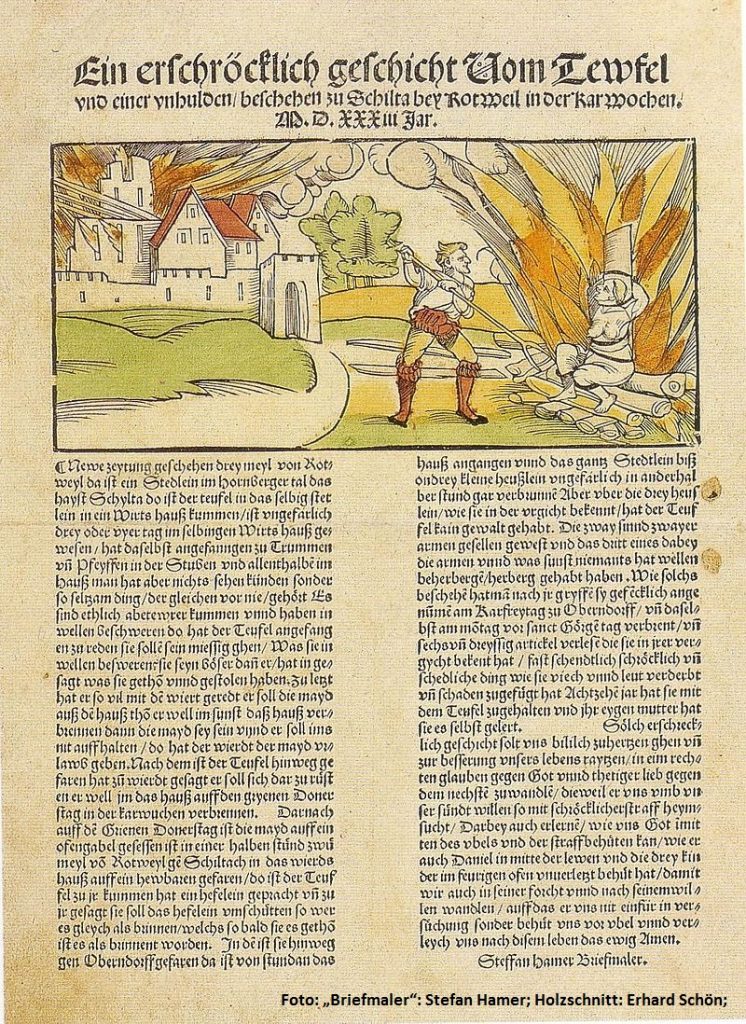 Ein erschröcklich geschicht Vom Tewfel
vnd einer vnhulden/ beschehen zu Schilta bey Rotweil in der Karwochen.
M. D. XXXiii Jar.
¶ Newe zeytung geschehen drey meyl von Rot⸗
weyl da ist ein Stedlein im Hornberger tal das
hayst Schylta do ist der teufel in das selbig stet
lein in ein Wirts hauß kummen/ist vngefärlich
drey oder vyer tag im selbingen Wirts hauß ge⸗
wesen/hat daselbst angefanngen zu Trummen
vñ Pfeyffen in der Stuben vnd allenthalbẽ im
hauß man hat aber nichts sehen künden sonder
so seltzam ding/der gleichen vor nie/gehört Es
sind ethlich abetewrer kummen vnnd haben in
wellen beschweren do hat der Teufel angefang
en zu reden sie sollẽ sein messig ghen/Was sie in
wellen beswerensie seyn böser dañ er/hat in ge⸗
sagt was sie gethõ vnnd gestolen haben. Zu letzt
hat er so vil mit dẽ wiert geredt er soll die mayd
auß dẽ hauß thõ er well im sunst daß hauß ver⸗
brennen dann die mayd sey sein vnnd er soll ims
nit auff halten/do hat der wierdt der mayd vr⸗
lawb geben. Nach dem ist der Teufel hinweg ge
faren hat zũ wierdt gesagt er soll sich dar zu rüst
en er well jm das hauß auff den gryenen Doner
stag in der karwuchen verbrennen. Darnach
auff dẽ Grienen Donerstag ist die mayd auff ein
ofengabel gesessen ist in einer halben stũnd zwũ
meyl võ Rotweyl gẽ Schiltach in das wierds
hauß auff ein hewbaren gefaren/do ist der Teufel
zu jr kummen hat ein hefelein gepracht vñ zu
jr gesagt sie soll das hefelein vmschütten so wer
es gleych als brinnen/welchs so bald sie es gethõ
ist es als brinnent worden. In dẽ ist sie hinweg
gen Oberndorff gefaren da ist von stundan das
hauß angangen vnnd das gantz Stedtlein biß
on drey kleine heußlein vngefärlich in anderhal
ber stund gar verbrunnẽ Aber vber die drey heus
lein/wie sie in der vrgicht bekennt/hat der Teuf
fel kain gewalt gehabt. Die zway sinnd zwayer
armen gesellen gewest vnd das dritt eines dabey
die armen vnnd was sunst niemants hat wellen
beherbergẽ/herberg gehabt haben. Wie solchs
beschehẽ hat mã nach jr gryffẽ sy gefẽcklich ange
nũmẽ am Karfreytag zu Oberndorff/vñ dasel⸗
bst am mõtag vor sanct Görgẽ tag verbrent/vñ
sechs vñ dreyssig artickel verlesẽ die sie in jrer ver⸗
gycht bekent hat/fast schendtlich schröcklich vñ
schedliche ding wie sie viech vnnd leut verderbt
vñ schaden zugefügt hat Achtzehẽ jar hat sie mit
dem Teufel zugehalten vnd jhr eygen mutter hat
sie es selbst gelert. Sölch erschreck⸗
lich geschicht solt vns bilich zuhertzen ghen vñ
zur besserung vnsers lebens raytzen/in eim rech⸗
ten glauben gegen Got vnnd thetiger lieb gegen
dem nechstẽ zuwandlẽ/dieweil er vns vmb vn⸗
ser sündt willen so mit schröcklicher straff heym⸗
sucht/Darbey auch erlernẽ/wie vns Got ĩmit
ten des vbels vnd der straff behüten kan/wie er
auch Daniel in mitte der lewen vnd die drey kin
der im feurigen ofen vnuerletzt behüt hat/damit
wir auch in seiner forcht vnnd nach seinem wil⸗
len wandlen/auff das er vns nit einfür in ver⸗
süchung sonder behüt vns vor vbel vnnd ver⸗
leych vns nach disem leben das ewig Amen.
Steffan Hamer Briefmaler.
Foto: „Briefmaler“: Stefan Hamer; Holzschnitt: Erhard Schön;